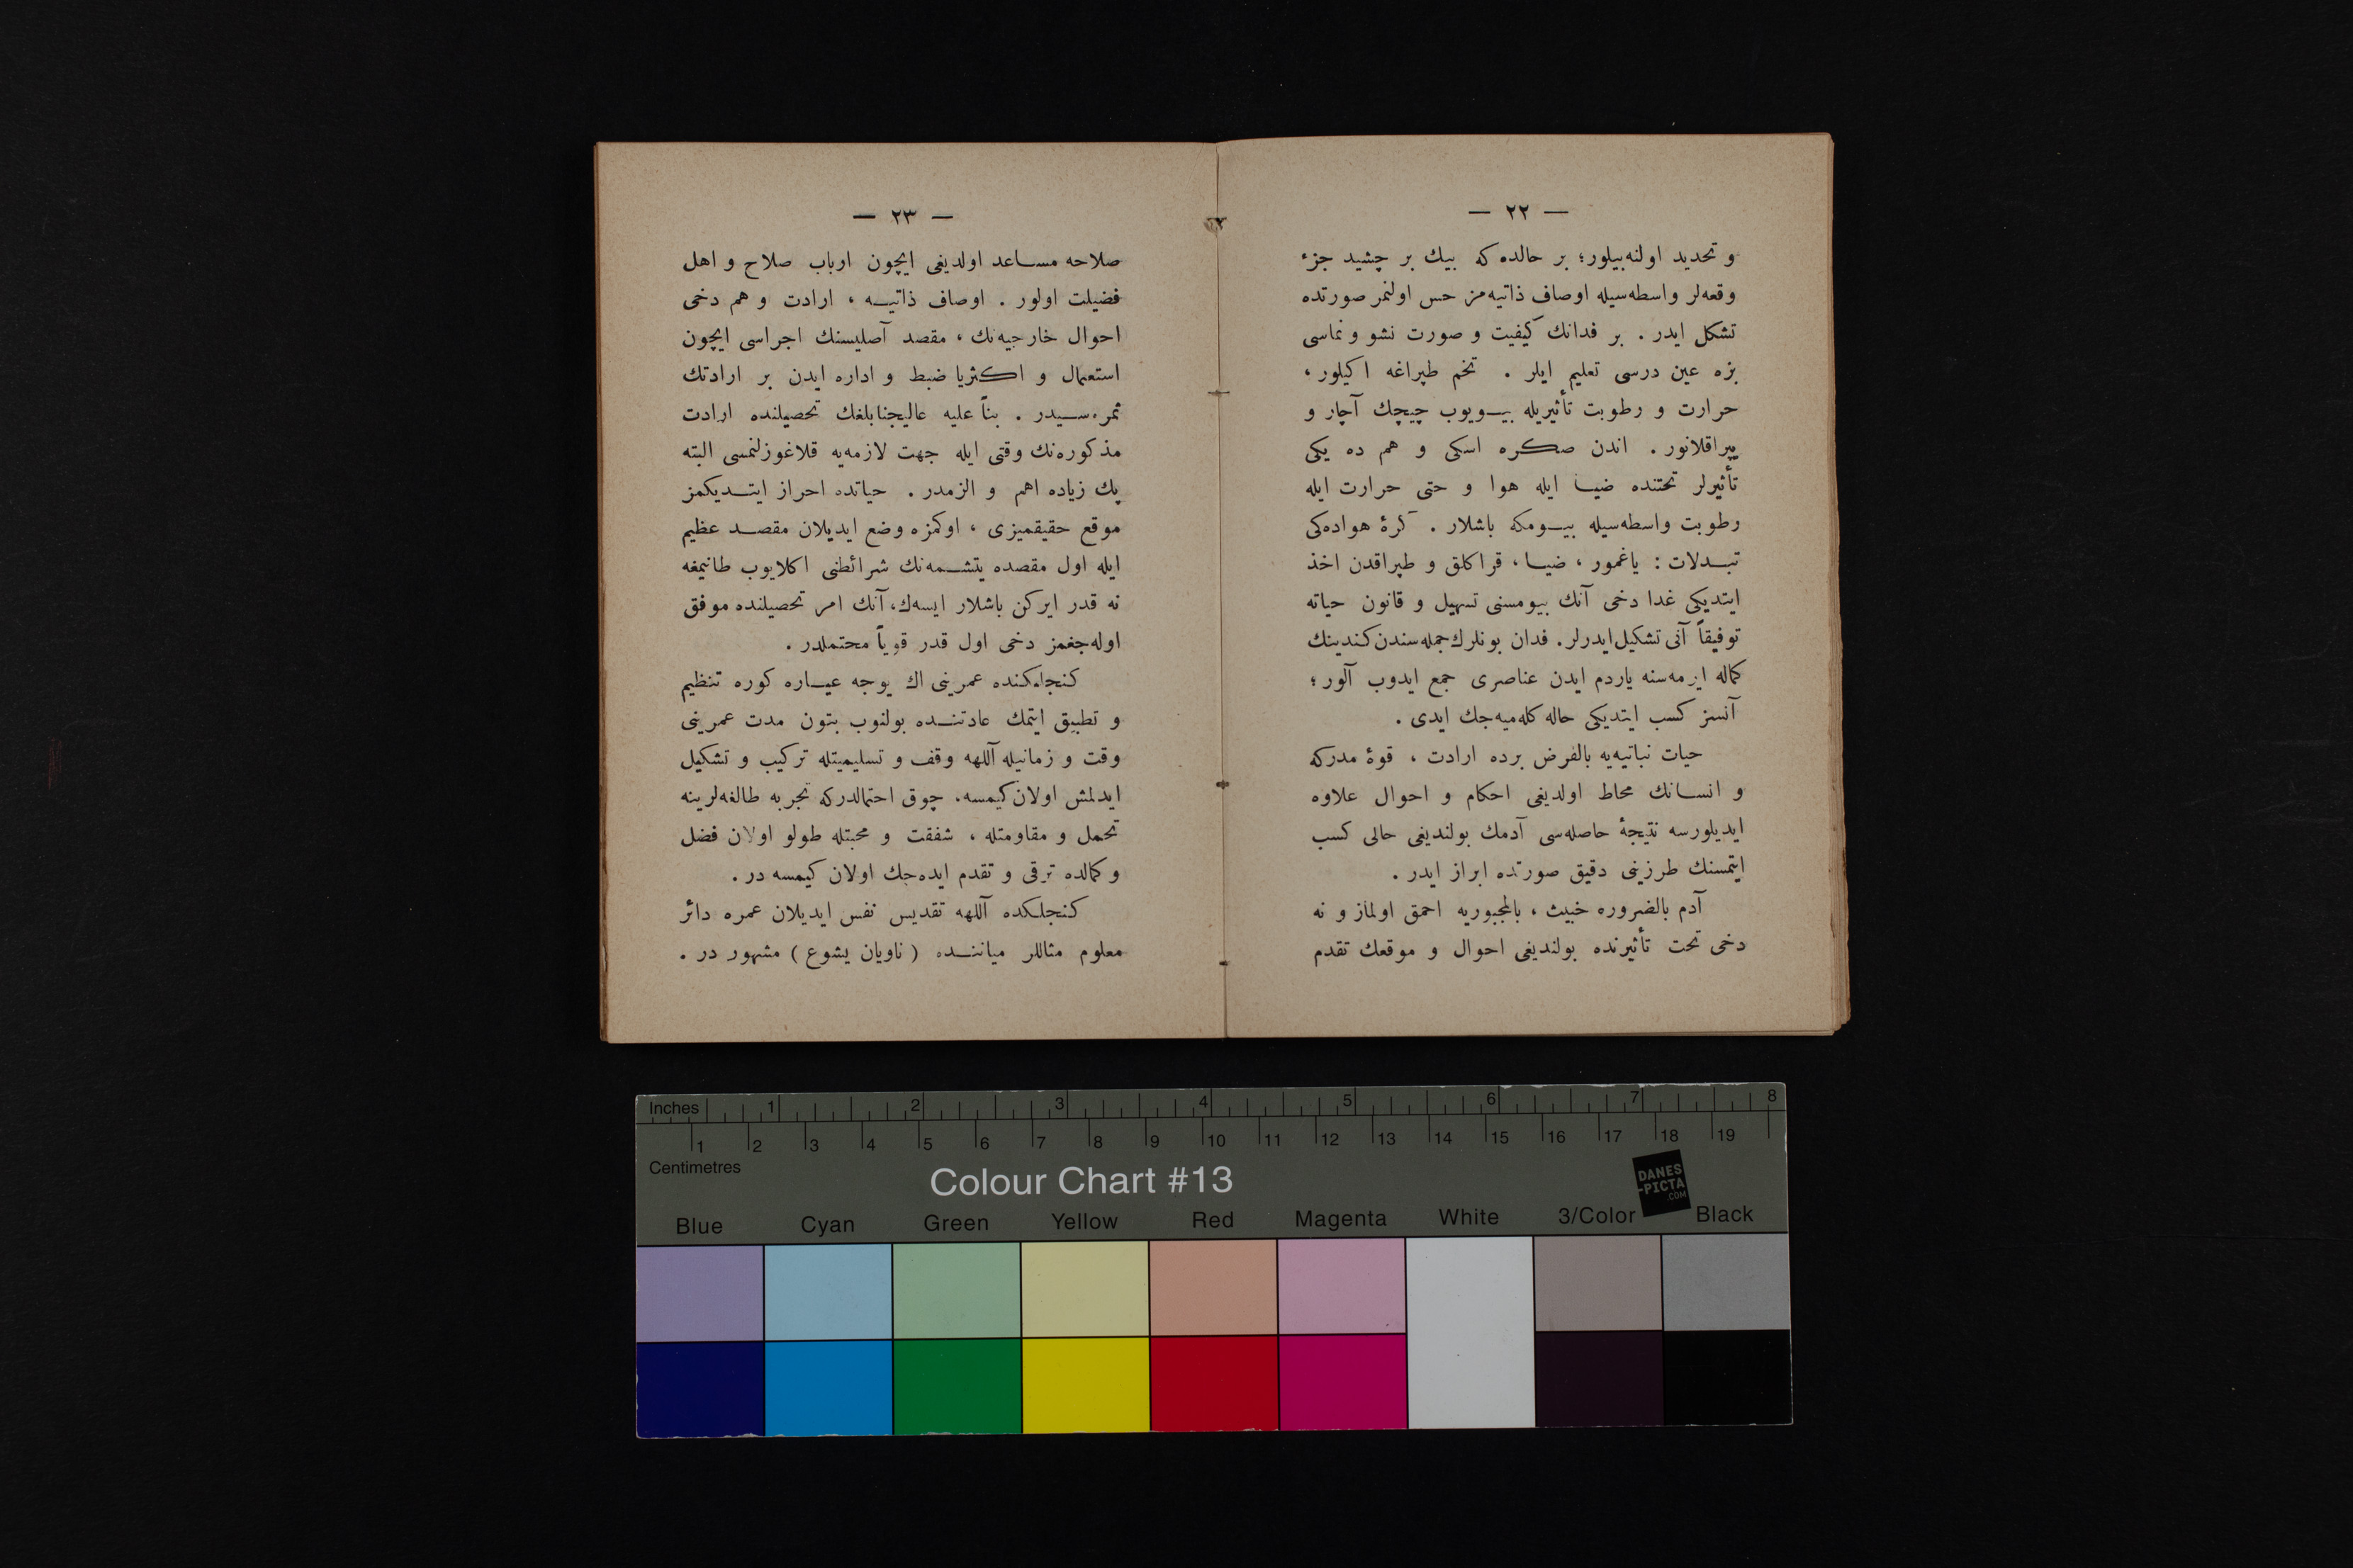 — ٢٢ —
و تحدید اولنه‌بیلور؛ بر حالده‌که بیك بر چشید جزء
وقعه‌لر واسطه‌سیله اوصاف ذاتیه‌مز حس اولنمز صورتده
تشکل ایدر . بر فدانك کیفیت و صورت نشو و نماسی
بزه عین درسی تعلیم ایلر . تخم طپراغه اکیلور ،
حرارت و رطوبت تأثیریله بیویوب چیچك آچار و
یپراقلانور . اندن صکره اسکی و هم ده یکی
تأثیرلر تحتنده ضیا ایله هوا و حتی حرارت ایله
رطوبت واسطه‌سیله بیومکه باشلار . کرهٔ هواده‌کی
تبدلات : یاغمور ، ضیا ، قراکلق و طپراقدن اخذ
ایتدیکی غدا دخی آنك بیومسنی تسهیل و قانون حیاته
توفیقاً آنی تشکیل ایدرلر . فدان بونلرك جمله‌سندن کندینك
کماله ایرمه‌سنه یاردم ایدن عناصری جمع ایدوب آلور ؛
آنسز کسب ایتدیکی حاله کله‌میه‌جك ایدی .
حیات نباتیه‌یه بالفرض برده ارادت ، قوهٔ مدرکه
و انسانك محاط اولدیغی احکام و احوال علاوه
ایدیلورسه نتیجهٔ حاصله‌سی آدمك بولندیغی حالی کسب
ایتمسنك طرزینی دقیق صورتده ابراز ایدر .
آدم بالضروره خبیث ، بالمجبوریه احمق اولماز و نه
دخی تحت تأثیرنده بولندیغی احوال و موقعك تقدم
— ٢٣ —
صلاحه مساعد اولدیغی ایچون ارباب صلاح و اهل
فضیلت اولور . اوصاف ذاتیه ، ارادت و هم دخی
احوال خارجیه‌نك ، مقصد آصلیسنك اجراسی ایچون
استعمال و اکثریا ضبط و اداره ایدن بر ارادتك
ثمره‌سیدر . بناً علیه عالیجنابلغك تحصیلنده ارادت
مذکوره‌نك وقتی ایله جهت لازمه‌یه قلاغوزلنمسی البته
پك زیاده اهم و الزمدر . حیاتده احراز ایتدیکمز
موقع حقیقمیزی ، اوکمزه وضع ایدیلان مقصد عظیم
ایله اول مقصده یتشمه‌نك شرائطنی اکلایوب طانیمغه
نه قدر ایرکن باشلار ایسه‌ك، آنك امر تحصیلنده موفق
اوله‌جغمز دخی اول قدر قویاً محتملدر .
کنجلکنده عمرینی اك یوجه عیاره کوره تنظیم
و تطبیق ایتمك عادتنده بولنوب بتون مدت عمرینی
وقت و زمانیله آللهه وقف و تسلیمیتله ترکیب و تشکیل
ایدلمش اولان کیمسه، چوق احتمالدرکه تجربه طالغه‌لرینه
تحمل و مقاومتله ، شفقت و محبتله طولو اولان فضل
و کمالده ترقی و تقدم ایده‌جك اولان کیمسه در .
کنجلکده آللهه تقدیس نفس ایدیلان عمره دائر
معلوم مثاللر میاننده ( ناویان یشوع ) مشهور در .
Inches 1 2 3 4 5 6 7 8
1 2 3 4 5 6 7 8 9 10 11 12 13 14 15 16 17 18 19
Centimetres
Colour Chart #13
DANES
-PICTA
.COM
Blue Cyan Green Yellow Red Magenta White 3/Color Black